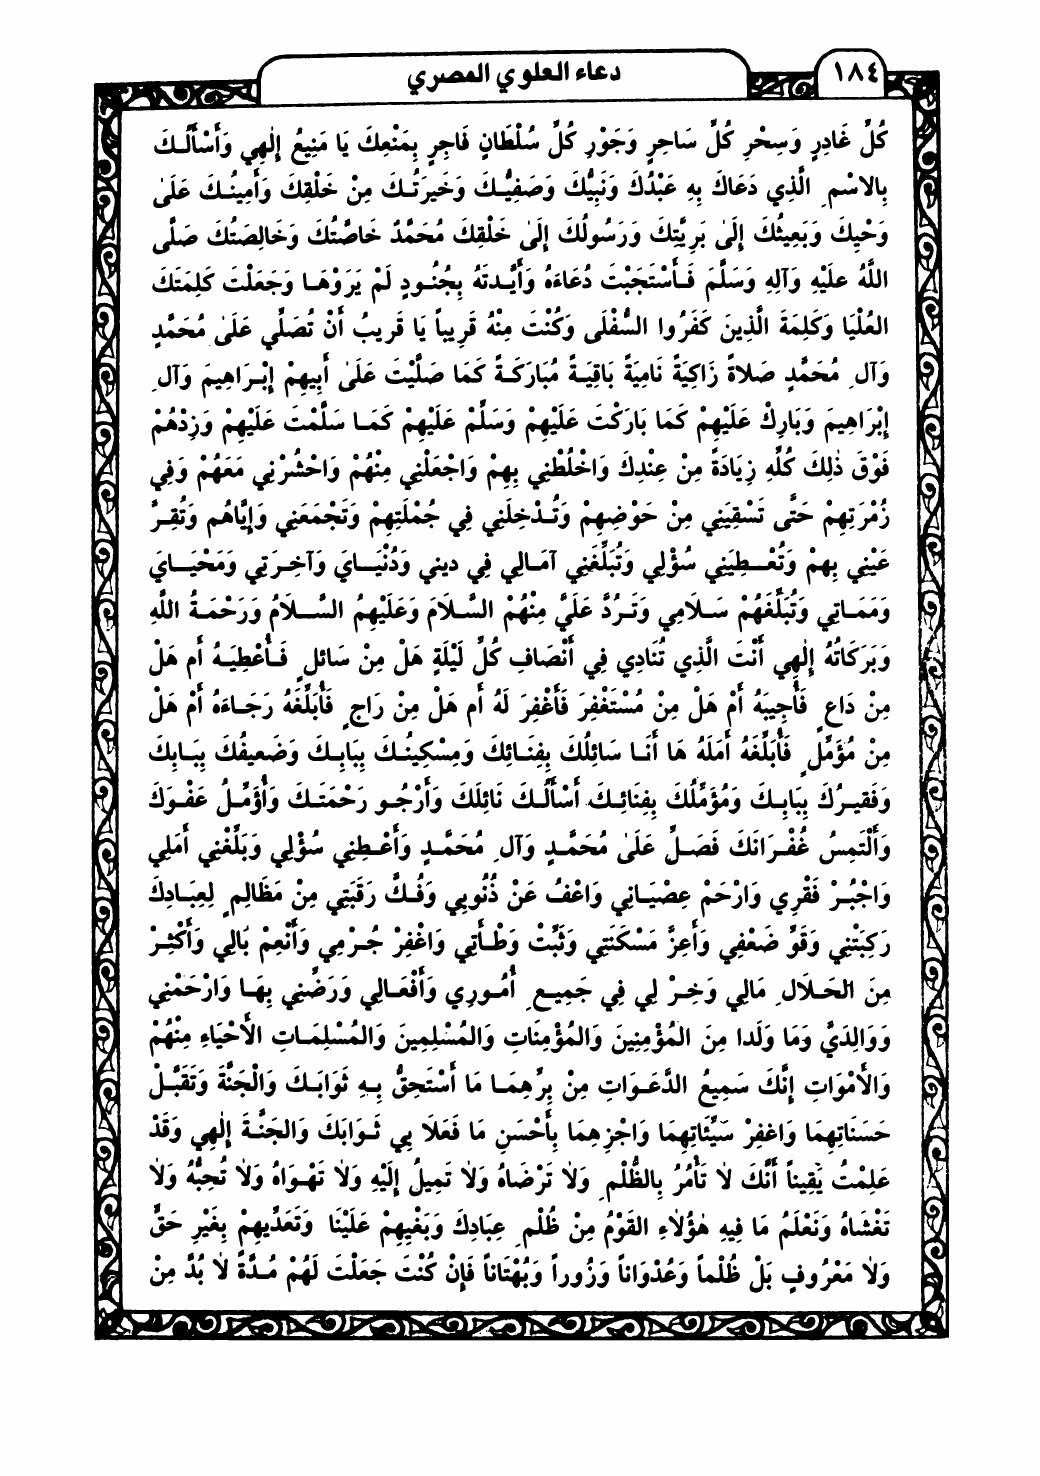 ١٨٤
دعاء العلوي المصري
كُلِّ غَادِرٍ وَسِحْرِ كُلِّ سَاحِرٍ وَجَوْرِ كُلِّ سُلْطَانٍ فَاجِرٍ بِمَنْعِكَ يَا مَنِيعُ إِلٰهِي وَأَسْأَلُـكَ
بِالاسْمِ الَّذِي دَعَاكَ بِهِ عَبْدُكَ وَنَبِيُّكَ وَصَفِيُّـكَ وَخَيرَتُـكَ مِنْ خَلْقِكَ وَأَمِينُـكَ عَلَىٰ
وَحْيِكَ وَبَعِيثُكَ إِلَىٰ بَرِيَّتِكَ وَرَسُولُكَ إِلَىٰ خَلْقِكَ مُحَمَّدٌ خَاصَّتُكَ وَخَالِصَتُكَ صَلَّى
اللَّهُ علَيْهِ وَآلِهِ وَسَلَّمَ فَـأَسْتَجَبْتَ دُعَاءَهُ وَأَيَّـدتَهُ بِجُنُـودٍ لَمْ يَرَوْهَـا وَجَعَلْتَ كَلِمَتَكَ
العُلْيَا وَكَلِمَةَ الَّذِينَ كَفَرُوا السُّفْلَى وَكُنْتَ مِنْهُ قَرِيباً يَا قَرِيبُ أَنْ تُصَلِّي عَلَىٰ مُحَمَّدٍ
وَآلِ مُحَمَّدٍ صَلاةً زَاكِيَةً نَامِيَةً بَاقِيَـةً مُبَارَكَـةً كَمَا صَلَّيْتَ عَلَىٰ أَبِيهِمْ إِبْـرَاهِيمَ وَآلِ
إِبْرَاهِيمَ وَبَارِكْ عَلَيْهِمْ كَمَا بَارَكْتَ عَلَيْهِمْ وَسَلِّمْ عَلَيْهِمْ كَمَـا سَلَّمْتَ عَلَيْهِمْ وَزِدْهُمْ
فَوْقَ ذٰلِكَ كُلِّهِ زِيَادَةً مِنْ عِنْدِكَ وَاخْلُطْنِي بِهِمْ وَاجْعَلْنِي مِنْهُمْ وَاحْشُرْنِي مَعَهُمْ وَفِي
زُمْرَتِهِمْ حَتَّى تَسْقِيَنِي مِنْ حَوْضِهِمْ وَتُـدْخِلَنِي فِي جُمْلَتِهِمْ وَتَجْمَعَنِي وَإِيَّاهُم وَتُقِـرَّ
عَيْنِي بِهِمْ وَتُعْـطِيَنِي سُؤْلِي وَتُبَلِّغَنِي آمَـالِي فِي دِيني وَدُنْيَـايَ وَآخِـرَتِي وَمَحْيَـايَ
وَمَمَـاتِي وَتُبَلِّغَهُمْ سَـلَامِي وَتَـرُدَّ عَلَيَّ مِنْهُمْ السَّلامَ وَعَلَيْهِمُ السَّـلامُ وَرَحْمَـةُ اللَّهِ
وَبَرَكَاتُهُ إِلٰهِي أَنْتَ الَّذِي تُنَادِي فِي أَنْصَافِ كُلِّ لَيْلَةٍ هَلْ مِنْ سَائلٍ فَـأُعْطِيَـهُ أم هَلْ
مِنْ دَاعٍ فَأُجِيبَهُ أَمْ هَلْ مِنْ مُسْتَغْفِرَ فَأَغْفِرَ لَهُ أم هَلْ مِنْ رَاجٍ فَأُبَلِّغَهُ رَجَـاءَهُ أَمْ هَلْ
مِنْ مُؤَمِّلٍ فَأُبَلِّغَهُ أَمَلَهُ هَا أَنَـا سَائِلُكَ بِفِنَـائِكَ وَمِسْكِينُـكَ بِبَابِـكَ وَضَعيفُكَ بِبَـابِكَ
وَفَقيـرُكَ بِبَابِـكَ وَمُؤَمِّلُكَ بِفِنَائِكَ أَسْأَلُـكَ نَائِلَكَ وَأَرْجُـو رَحْمَتَـكَ وَأُؤَمِّـلُ عَفْـوَكَ
وَأَلْتَمِسُ غُفْـرَانَكَ فَصَـلِّ عَلَىٰ مُحَمَّـدٍ وَآلِ مُحَمَّـدٍ وَأَعْـطِنِي سُؤْلِي وَبَلِّغْنِي أَمَلِي
وَاجْبُـرْ فَقْرِي وَارْحَمْ عِصْيَـانِي وَاعْفُ عَنْ ذُنُوبِي وَفُـكَّ رَقَبَتِي مِنْ مَظَالِمٍ لِعِبَـادِكَ
رَكِبَتْنِي وَقَوِّ ضَعْفِي وَأَعِزَّ مَسْكَنَتِي وَثَبِّتْ وَطْـأَتِي وَاغْفِرْ جُـرْمِي وَأَنْعِمْ بَالِي وَأَكْثِـرْ
مِنَ الحَـلَالِ مَالِي وَخِـرْ لِي فِي جَمِيـعِ أُمُـورِي وَأَفْعَـالِي وَرَضِّنِي بِهَـا وَارْحَمْنِي
وَوَالِدَيَّ وَمَا وَلَدا مِنَ المُؤْمِنِينَ وَالمُؤْمِنَاتِ وَالمُسْلِمِينَ وَالمُسْلِمَـاتِ الأَحْيَاءِ مِنْهُمْ
وَالأَمْوَاتِ إِنَّكَ سَمِيعُ الدَّعَـوَاتِ مِنْ بِرِّهِمَـا مَا أَسْتَحِقُّ بِـهِ ثَوَابَـكَ وَالْجَنَّةَ وَتَقَبَّـلْ
حَسَنَاتِهِمَا وَاغفِرْ سَيِّئَاتِهِمَا وَاجْزِهِمَا بِأَحْسَنِ مَا فَعَلَا بِي ثَـوَابَكَ وَالجَنَّـةَ إِلٰهِي وَقَدْ
عَلِمْتُ يَقِيناً أَنَّكَ لَا تَأْمُرُ بِالظُّلْمِ وَلَا تَرْضَاهُ وَلَا تَمِيلُ إِلَيْهِ وَلَا تَهْـوَاهُ وَلَا تُحِبُّهُ وَلَا
تَغْشَاهُ وَتَعْلَمُ مَا فِيهِ هٰؤُلَاءِ القَوْمُ مِنْ ظُلْمِ عِبَادِكَ وَبَغْيِهِمْ عَلَيْنَا وَتَعَدِّيهِمْ بِغَيْرِ حَقٍّ
وَلَا مَعْرُوفٍ بَلْ ظُلْماً وَعُدْوَاناً وَزُوراً وَبُهْتَاناً فَإِنْ كُنْتَ جَعَلْتَ لَهُمْ مُـدَّةً لَا بُدَّ مِنْ